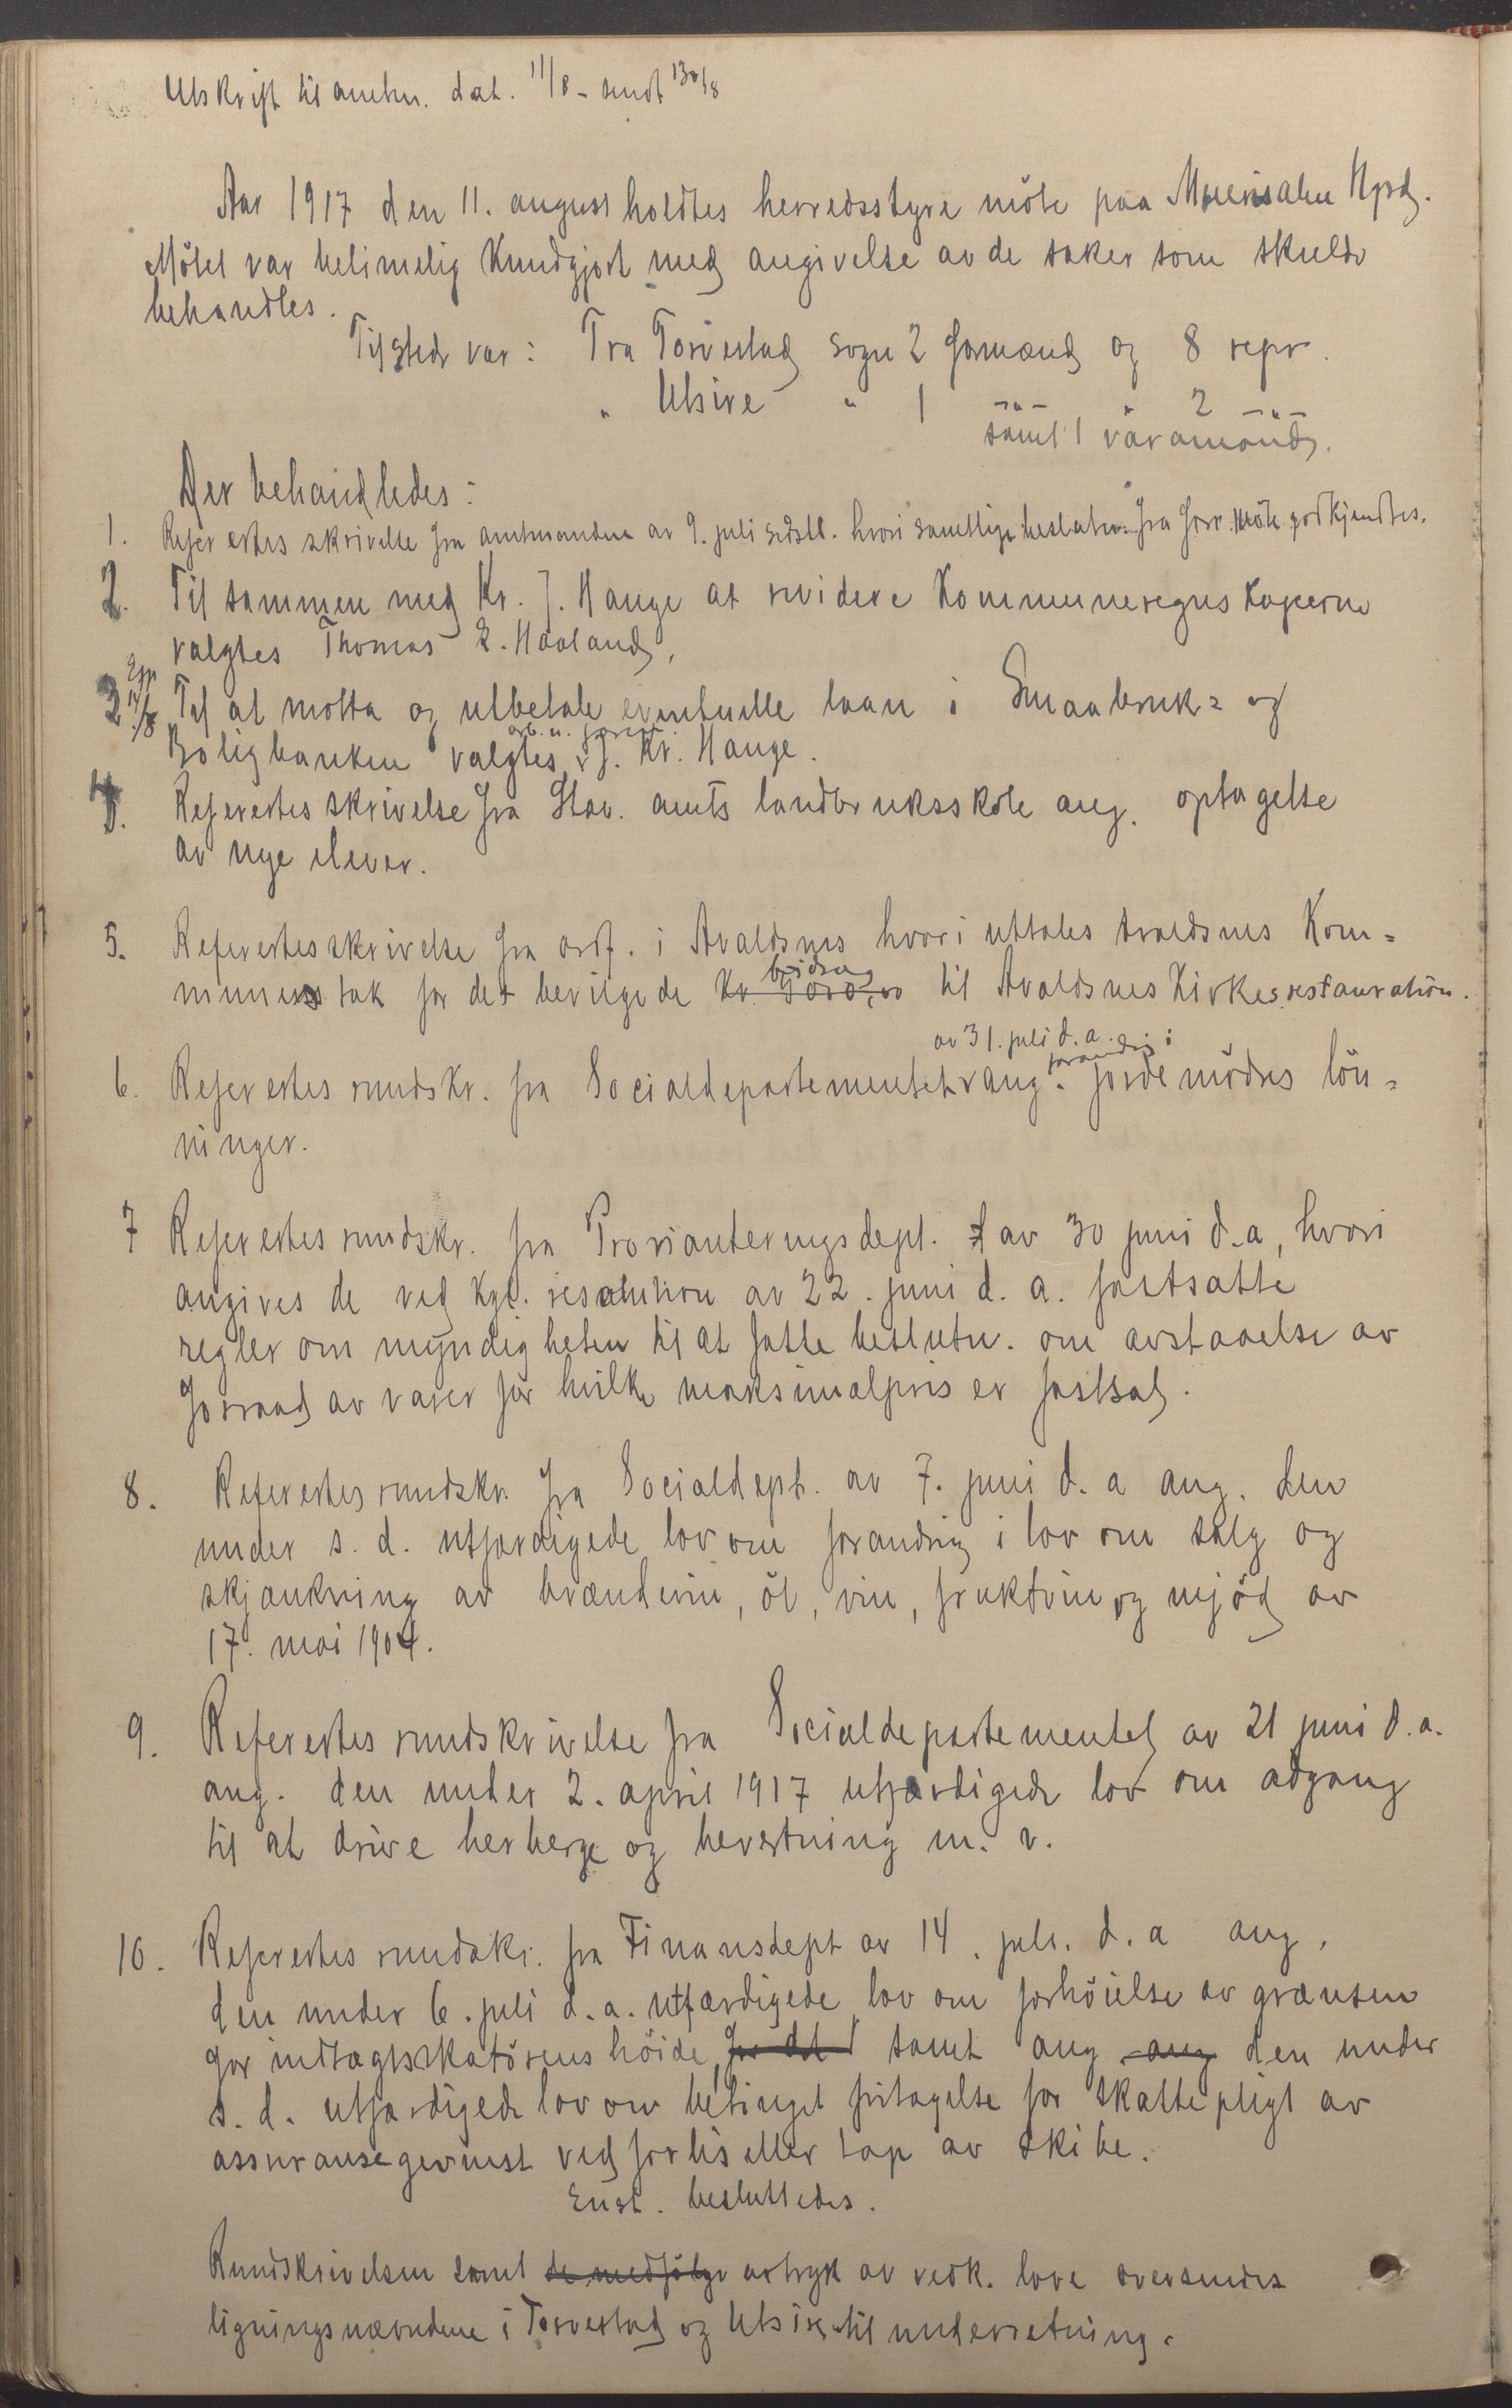 Utskrift til amtm. dat. 11/8 - sendt 13/8
Aar 1917 den 11. august holdtes herredsstyre möte paa
Mötet var betimelig kundgjort med angivelse av de saker som skulde
behandles.
Tilstede var: Fra Torvestad sogn 2 formænd og 8 repr.
" Utsire " 1 -"- " 2 -"-
samt 1 varamand.
Der behandledes:
1. Refertes skrivelse fra amtmanden av 9. juli sidstl. hvori samtlige beslutn. fra forr. möte godkjendtes.
2. Til sammen med Kr. J. Hauge at revidere Kommuneregnskaperne
valgtes Thomas L. Haaland,
Exp 14/8
3. Til at motta og utbetale eventuelle laan i Smaabruk= og
Boligbanken valgtes J. Kr. Hauge.
4. Refertes skrivelse fra Stav. amts landbruksskole ang. optagelse
av nye elever.
5. Refertes skrivelse fra ordf. i Avaldsnes hvori uttales Avaldsnes Kom=
munes tak for det bevilgede Kr. bidrag til Avaldsnes Kirkes restauration.
av 31. juli d.a. forandrig i
6. Refertes rundskr. fra Socialdepartementet ang. jordemödres lön=
ninger.
7 Refertes rundskr. fra Provianteringsdept. av 30 juni d.a, hvori
angives de ved kgl. resolution av 22. juni d. a. fastsatte
regler om myndigheten til at fatte beslutn. om avstaaelse av
forraad av varer for hvilke maksimalpris er fastsat.
8. Refertes rundskr. fra Socialdept. av 7. juni d. a ang. den
under s. d. utfærdigede lov om forandrig i lov om salg og
skjænkning av brændevin, öl, vin, fruktvin og mjöd av
17. mai 1904.
9. Refertes rundskrivelse fra Socialdepartementet av 21 juni d.a.
ang. den under 2. april 1917 utfærdigede lov om adgang
til at drive herberge og bevertning m. v.
10. Refertes rundskr. fra Finansdept av 14. juli. d. a ang,
den under 6. juli d. a. utfærdigede lov om forhöielse av grænsen
for indtægtsskatörens höide, for det samt ang. ang den under
s. d. utfærdigede lov om betinget fritagelse for skattepligt av
assuransegevinst ved forlis eller tap av skibe.
Enst. besluttedes.
Rundskrivelsen samt de medfölge avtryk av vedk. love oversendes
ligningsnævndene i Torvestad og Utsire til underretning.